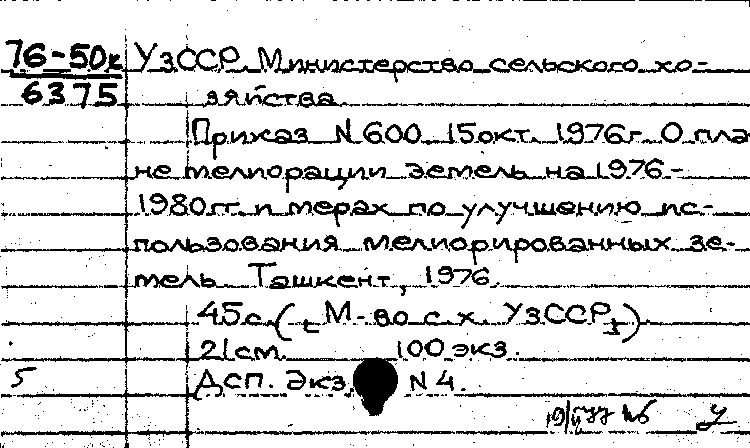 76-50к УзССР. Министерство сельского хо-
6375 зяйства.
Приказ N 600 15 окт. 1976г. О пла
не мелиорации земель на 1976-
1980гг. и мерах по улучшению ис-
пользования мелиорированных зе-
мель. Ташкент, 1976.
45с. ([М-во с.х. УзССР])
21см. 100 экз.
5 ДСП. Экз. N 4.